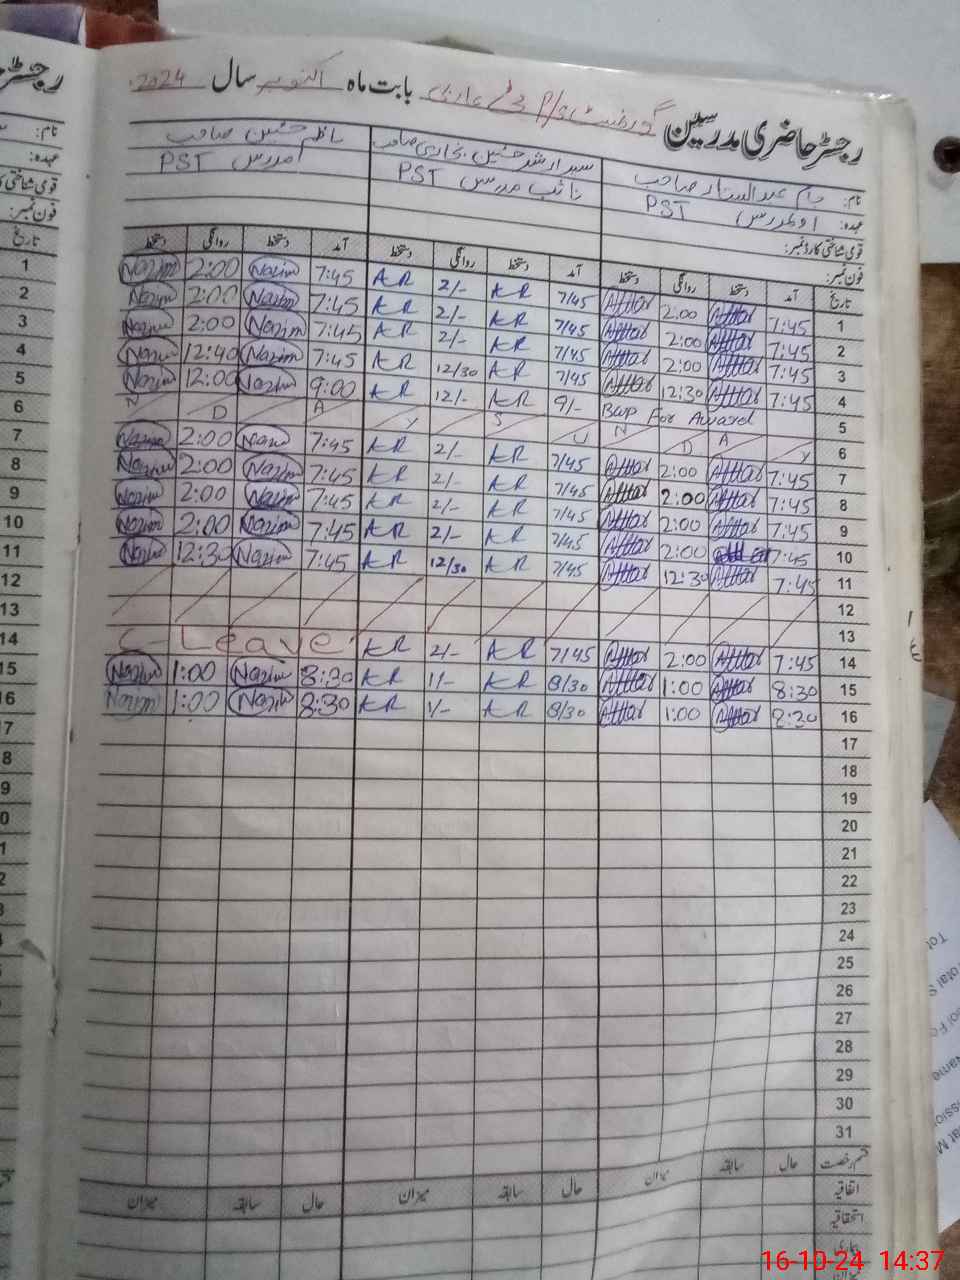 رجسٹر حاضری مدرسین گورنمنٹ P/S بابت ماہ اکتوبر سال 2024
نام: عبدالستار صاحب
سید ارشد حسین بخاری صاحب
ناظم حسین صاحب
عہدہ: PST
نائب مدرس PST
مدرس PST
قومی شناختی کارڈ نمبر:
فون نمبر:
تاریخ آمد دستخط روانگی دستخط آمد دستخط روانگی دستخط آمد دستخط روانگی دستخط
1 7:45 Attar 2:00 Attar 7/45 AR 2/- AR 7:45 Nazim 2:00 Nazim
2 7:45 Attar 2:00 Attar 7/45 AR 2/- AR 7:45 Nazim 2:00 Nazim
3 7:45 Attar 2:00 Attar 7/45 AR 2/- AR 7:45 Nazim 2:00 Nazim
4 7:45 Attar 12:30 Attar 7/45 AR 12/30 AR 7:45 Nazim 12:40 Nazim
5 Bwp For Award 9/- AR 12/- AR 9:00 Nazim 12:00 Nazim
6 Y A D N U S Y A D N
7 7:45 Attar 2:00 Attar 7/45 AR 2/- AR 7:45 Nazim 2:00 Nazim
8 7:45 Attar 2:00 Attar 7/45 AR 2/- AR 7:45 Nazim 2:00 Nazim
9 7:45 Attar 2:00 Attar 7/45 AR 2/- AR 7:45 Nazim 2:00 Nazim
10 7:45 Attar 2:00 Attar 7/45 AR 2/- AR 7:45 Nazim 2:00 Nazim
11 7:45 Attar 12:30 Attar 7/45 AR 12/30 AR 7:45 Nazim 12:30 Nazim
12
13
14 7:45 Attar 2:00 Attar 7/45 AR 2/- AR C-Leave
15 8:30 Attar 1:00 Attar 8/30 AR 1/- AR 8:30 Nazim 1:00 Nazim
16 8:30 Attar 1:00 Attar 8/30 AR 1/- AR 8:30 Nazim 1:00 Nazim
17
18
19
20
21
22
23
24
25
26
27
28
29
30
31
قسم رخصت حال سابقہ میزان حال سابقہ میزان حال سابقہ میزان
اتفاقیہ
استحقاقیہ
بیماری
میزان
16-10-24 14:37